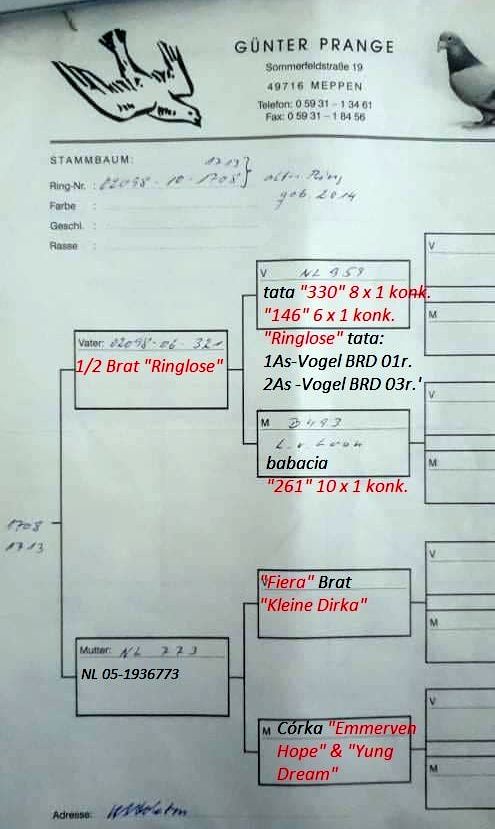 GÜNTER PRANGE
Sommerfeldstraße 19
49716 MEPPEN
Telefon: 0 59 31 – 1 34 61
Fax: 0 59 31 – 1 84 56
STAMMBAUM:
1713
Ring-Nr. : 02098-10-1708
geb. 2014
Farbe :
Geschl. :
Rasse :
V NL 959
tata "330" 8 x 1 konk.
"146" 6 x 1 konk.
"Ringlose" tata:
1As-Vogel BRD 01r.
2As -Vogel BRD 03r.'
Vater: 02098-06-321
1/2 Brat "Ringlose"
M B 493
babacia
"261" 10 x 1 konk.
1708
1713
V
"Fiera" Brat
"Kleine Dirka"
Mutter: NL 773
NL 05-1936773
M Córka "Emmerven
Hope" & "Yung
Dream"
V
M
V
M
V
M
V
M
Adresse: